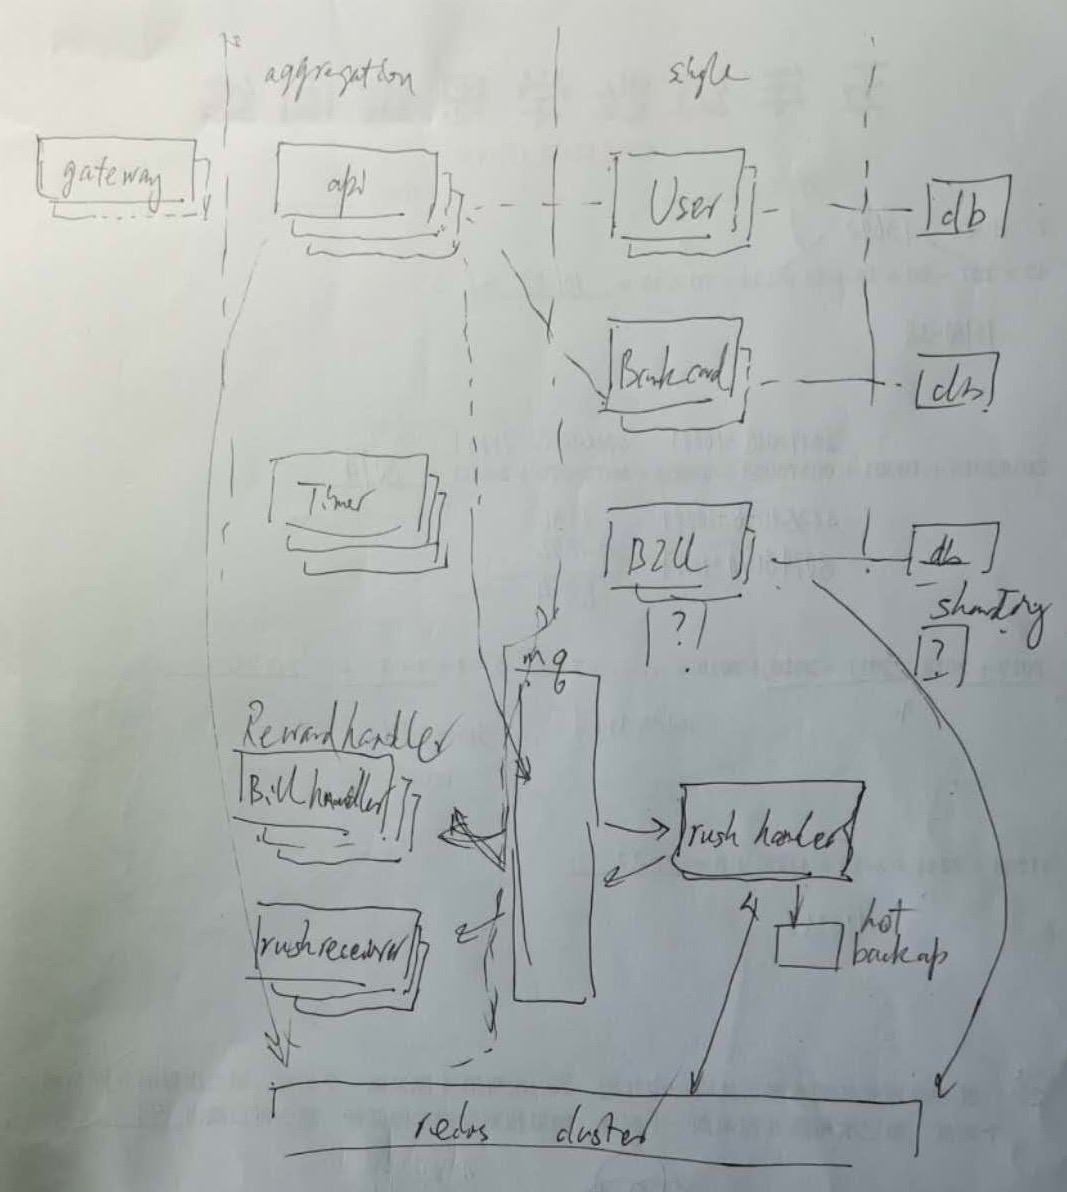 aggregation
single
gateway
api
User
db
Bankcard
db
Timer
Bill
db
sharding
?
?
mq
Rewardhandler
Billhandler
rush handler
rushreceiver
hot
backap
redis cluster